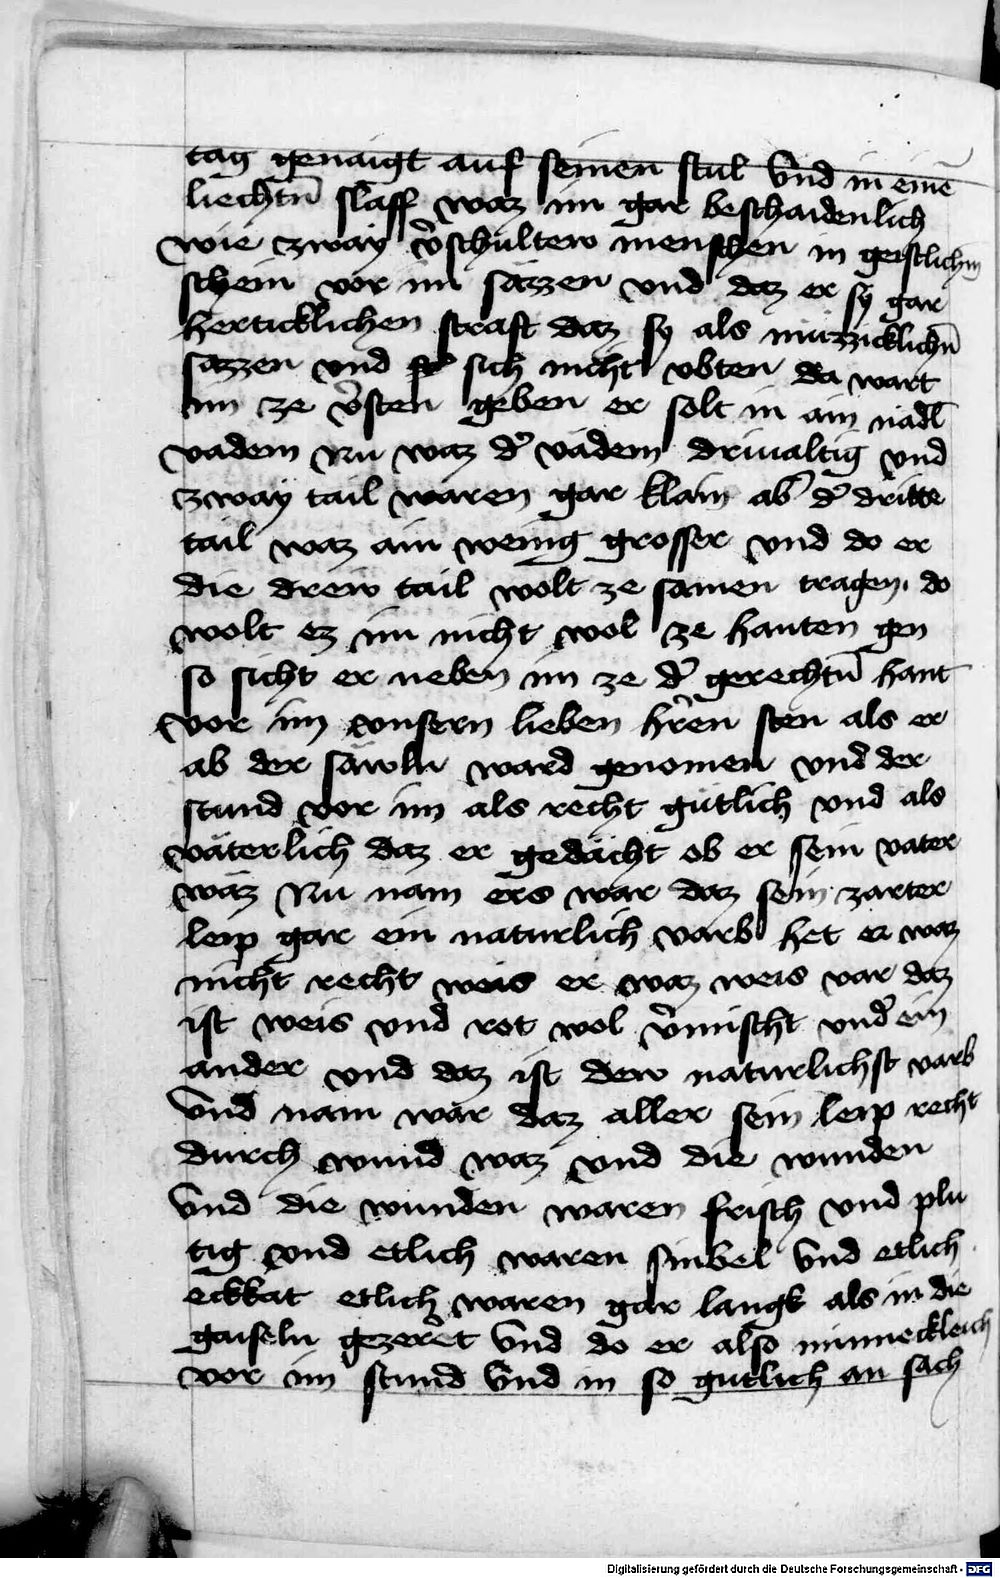 tag genaigt auf seinen stul Vnd in eine͞
liechtn̄ slaff waz im gar beschaidenlich
wie zway v̾schultew menschen in geistlichm
schein vor im sazzen vnd daz er sy gar
herticklichen straft daz sy als müzzicklichn̄
sazzen vnd sich nicht vbten da wart
im ze v̾sten geben er solt in ain nadl̄
vadem Nu waz d̾ vadem driualtig vnd
zway tail waren gar klain ab̾ d̾ dritte
tail waz ain wenig grosser vnd do er
die drew tail wolt ze samen tragen. do
wolt ez im nicht wol ze hanten gen
so sicht er neben im ze d̾ gerechtn̄ hant
vor im vnsern lieben hr̾en sten als er
ab der säwln ward genomen vnd der
stund vor im als recht gütlich vnd als
väterlich daz er gedächt ob er sein vater
wäz Nu nam ers war daz sein zarter
leip gar ein naturlich varb het er waz
nicht recht weis er waz weis var daz
ist weis vnd rot wol v̾mischt vnd̾ ein
ander vnd daz ist dew naturlichst varb
Vnd nam war daz aller sein leip recht
durch wund waz vnd die wunden
Vnd die wunden waren frisch vnd plu
tig vnd etlich waren sinbel Vnd etlich
eckkat etlich waren gar langk als in die
gaiseln gezer̾et Vnd do er also minnecleich
vor im stund Vnd in so gutlich an sach
Digitalisierung gefördert durch die Deutsche Forschungsgemeinschaft - DFG